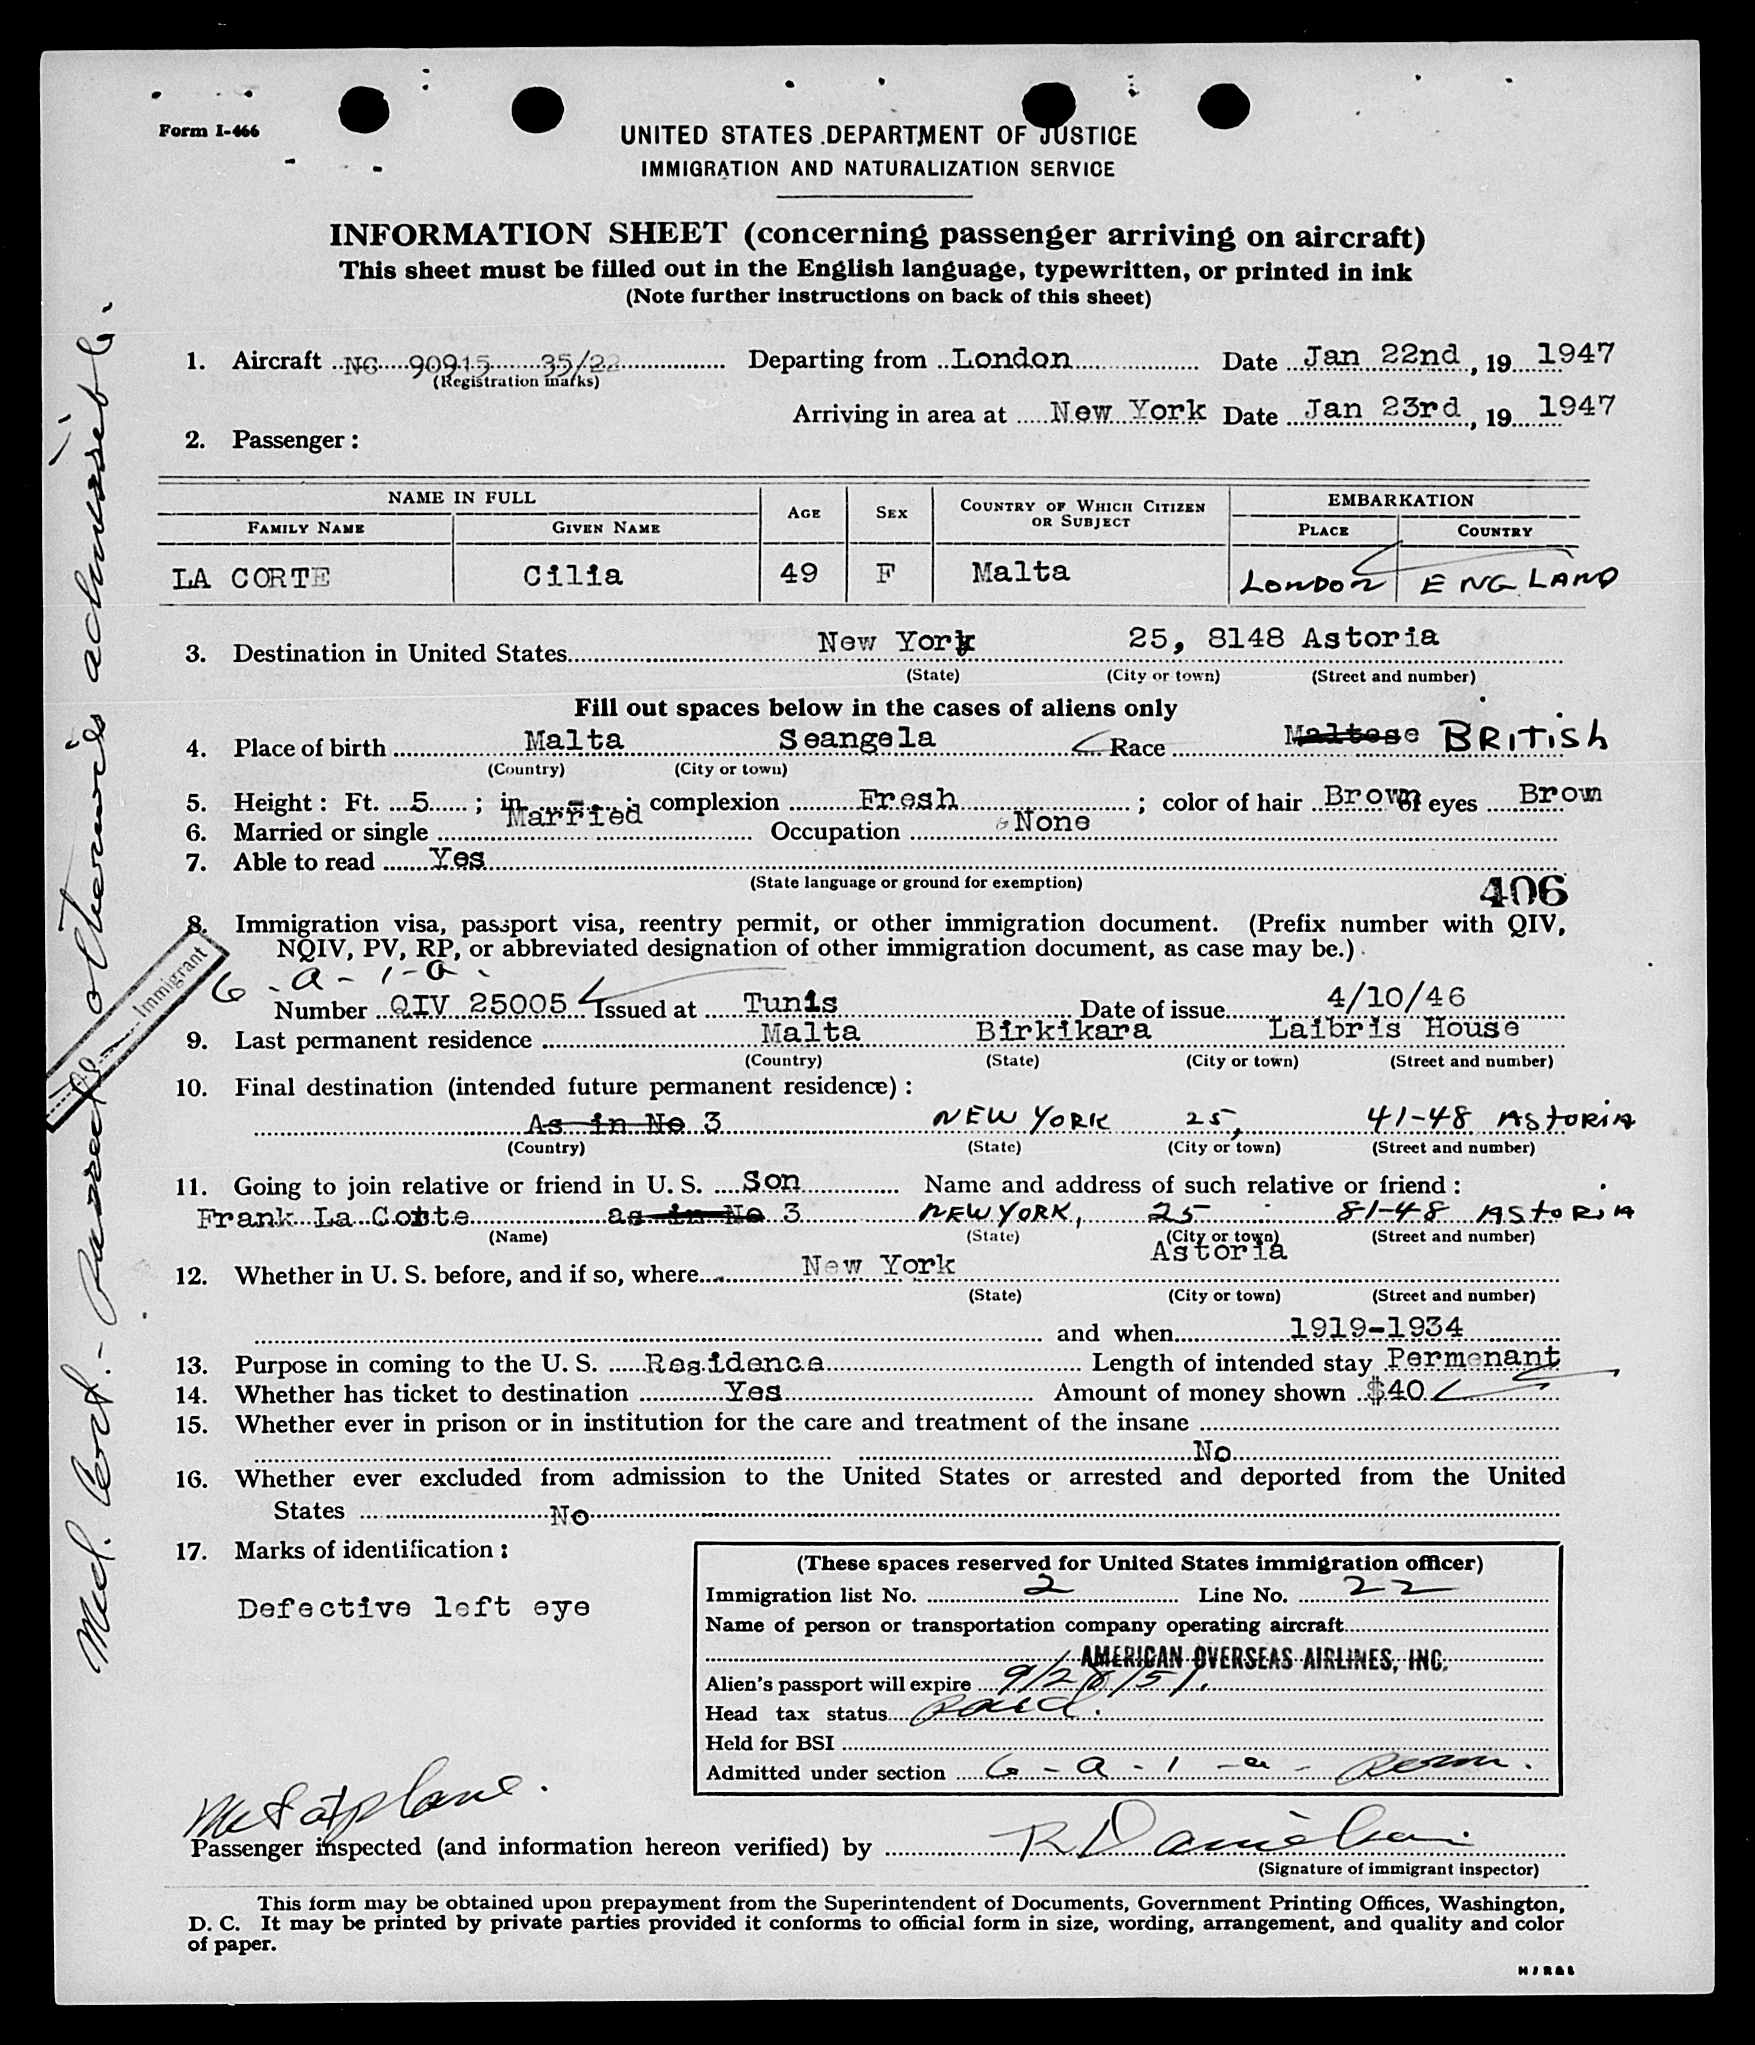 Form I-466
UNITED STATES DEPARTMENT OF JUSTICE
IMMIGRATION AND NATURALIZATION SERVICE
INFORMATION SHEET (concerning passenger arriving on aircraft)
This sheet must be filled out in the English language, typewritten, or printed in ink
(Note further instructions on back of this sheet)
1. Aircraft NC 90915 35/22 Departing from London Date Jan 22nd, 19 1947
(Registration marks)
Arriving in area at New York Date Jan 23rd, 19 1947
2. Passenger:
NAME IN FULL AGE SEX COUNTRY OF WHICH CITIZEN OR SUBJECT EMBARKATION
FAMILY NAME GIVEN NAME PLACE COUNTRY
LA CORTE Cilia 49 F Malta LONDON ENGLAND
3. Destination in United States New York 25, 8148 Astoria
(State) (City or town) (Street and number)
Fill out spaces below in the cases of aliens only
4. Place of birth Malta Seangela Race Maltese BRITISH
(Country) (City or town)
5. Height: Ft. 5 ; in. - ; complexion Fresh ; color of hair Brown eyes Brown
6. Married or single Married Occupation None
7. Able to read Yes
(State language or ground for exemption)
406
8. Immigration visa, passport visa, reentry permit, or other immigration document. (Prefix number with QIV,
NQIV, PV, RP, or abbreviated designation of other immigration document, as case may be.)
6-a-1-a.
Number QIV 25005 Issued at Tunis Date of issue 4/10/46
9. Last permanent residence Malta Birkikara Laibris House
(Country) (State) (City or town) (Street and number)
10. Final destination (intended future permanent residence):
As in No 3 NEW YORK 25, 41-48 ASTORIA
(Country) (State) (City or town) (Street and number)
11. Going to join relative or friend in U. S. Son Name and address of such relative or friend:
Frank La Corte as in No 3 NEW YORK, 25 81-48 ASTORIA
(Name) (State) (City or town) (Street and number)
12. Whether in U. S. before, and if so, where New York Astoria
(State) (City or town) (Street and number)
and when 1919-1934
13. Purpose in coming to the U. S. Residence Length of intended stay Permenant
14. Whether has ticket to destination Yes Amount of money shown $40
15. Whether ever in prison or in institution for the care and treatment of the insane
No
16. Whether ever excluded from admission to the United States or arrested and deported from the United
States No
17. Marks of identification:
Defective left eye
(These spaces reserved for United States immigration officer)
Immigration list No. 2 Line No. 22
Name of person or transportation company operating aircraft
AMERICAN OVERSEAS AIRLINES, INC.
Alien's passport will expire 9/28/51.
Head tax status Paid.
Held for BSI
Admitted under section 6-a-1-a- Perm.
Met at plane.
Passenger inspected (and information hereon verified) by
(Signature of immigrant inspector)
This form may be obtained upon prepayment from the Superintendent of Documents, Government Printing Offices, Washington,
D. C. It may be printed by private parties provided it conforms to official form in size, wording, arrangement, and quality and color
of paper.
Med. Cert. - Passed otherwise admissible.
Immigrant